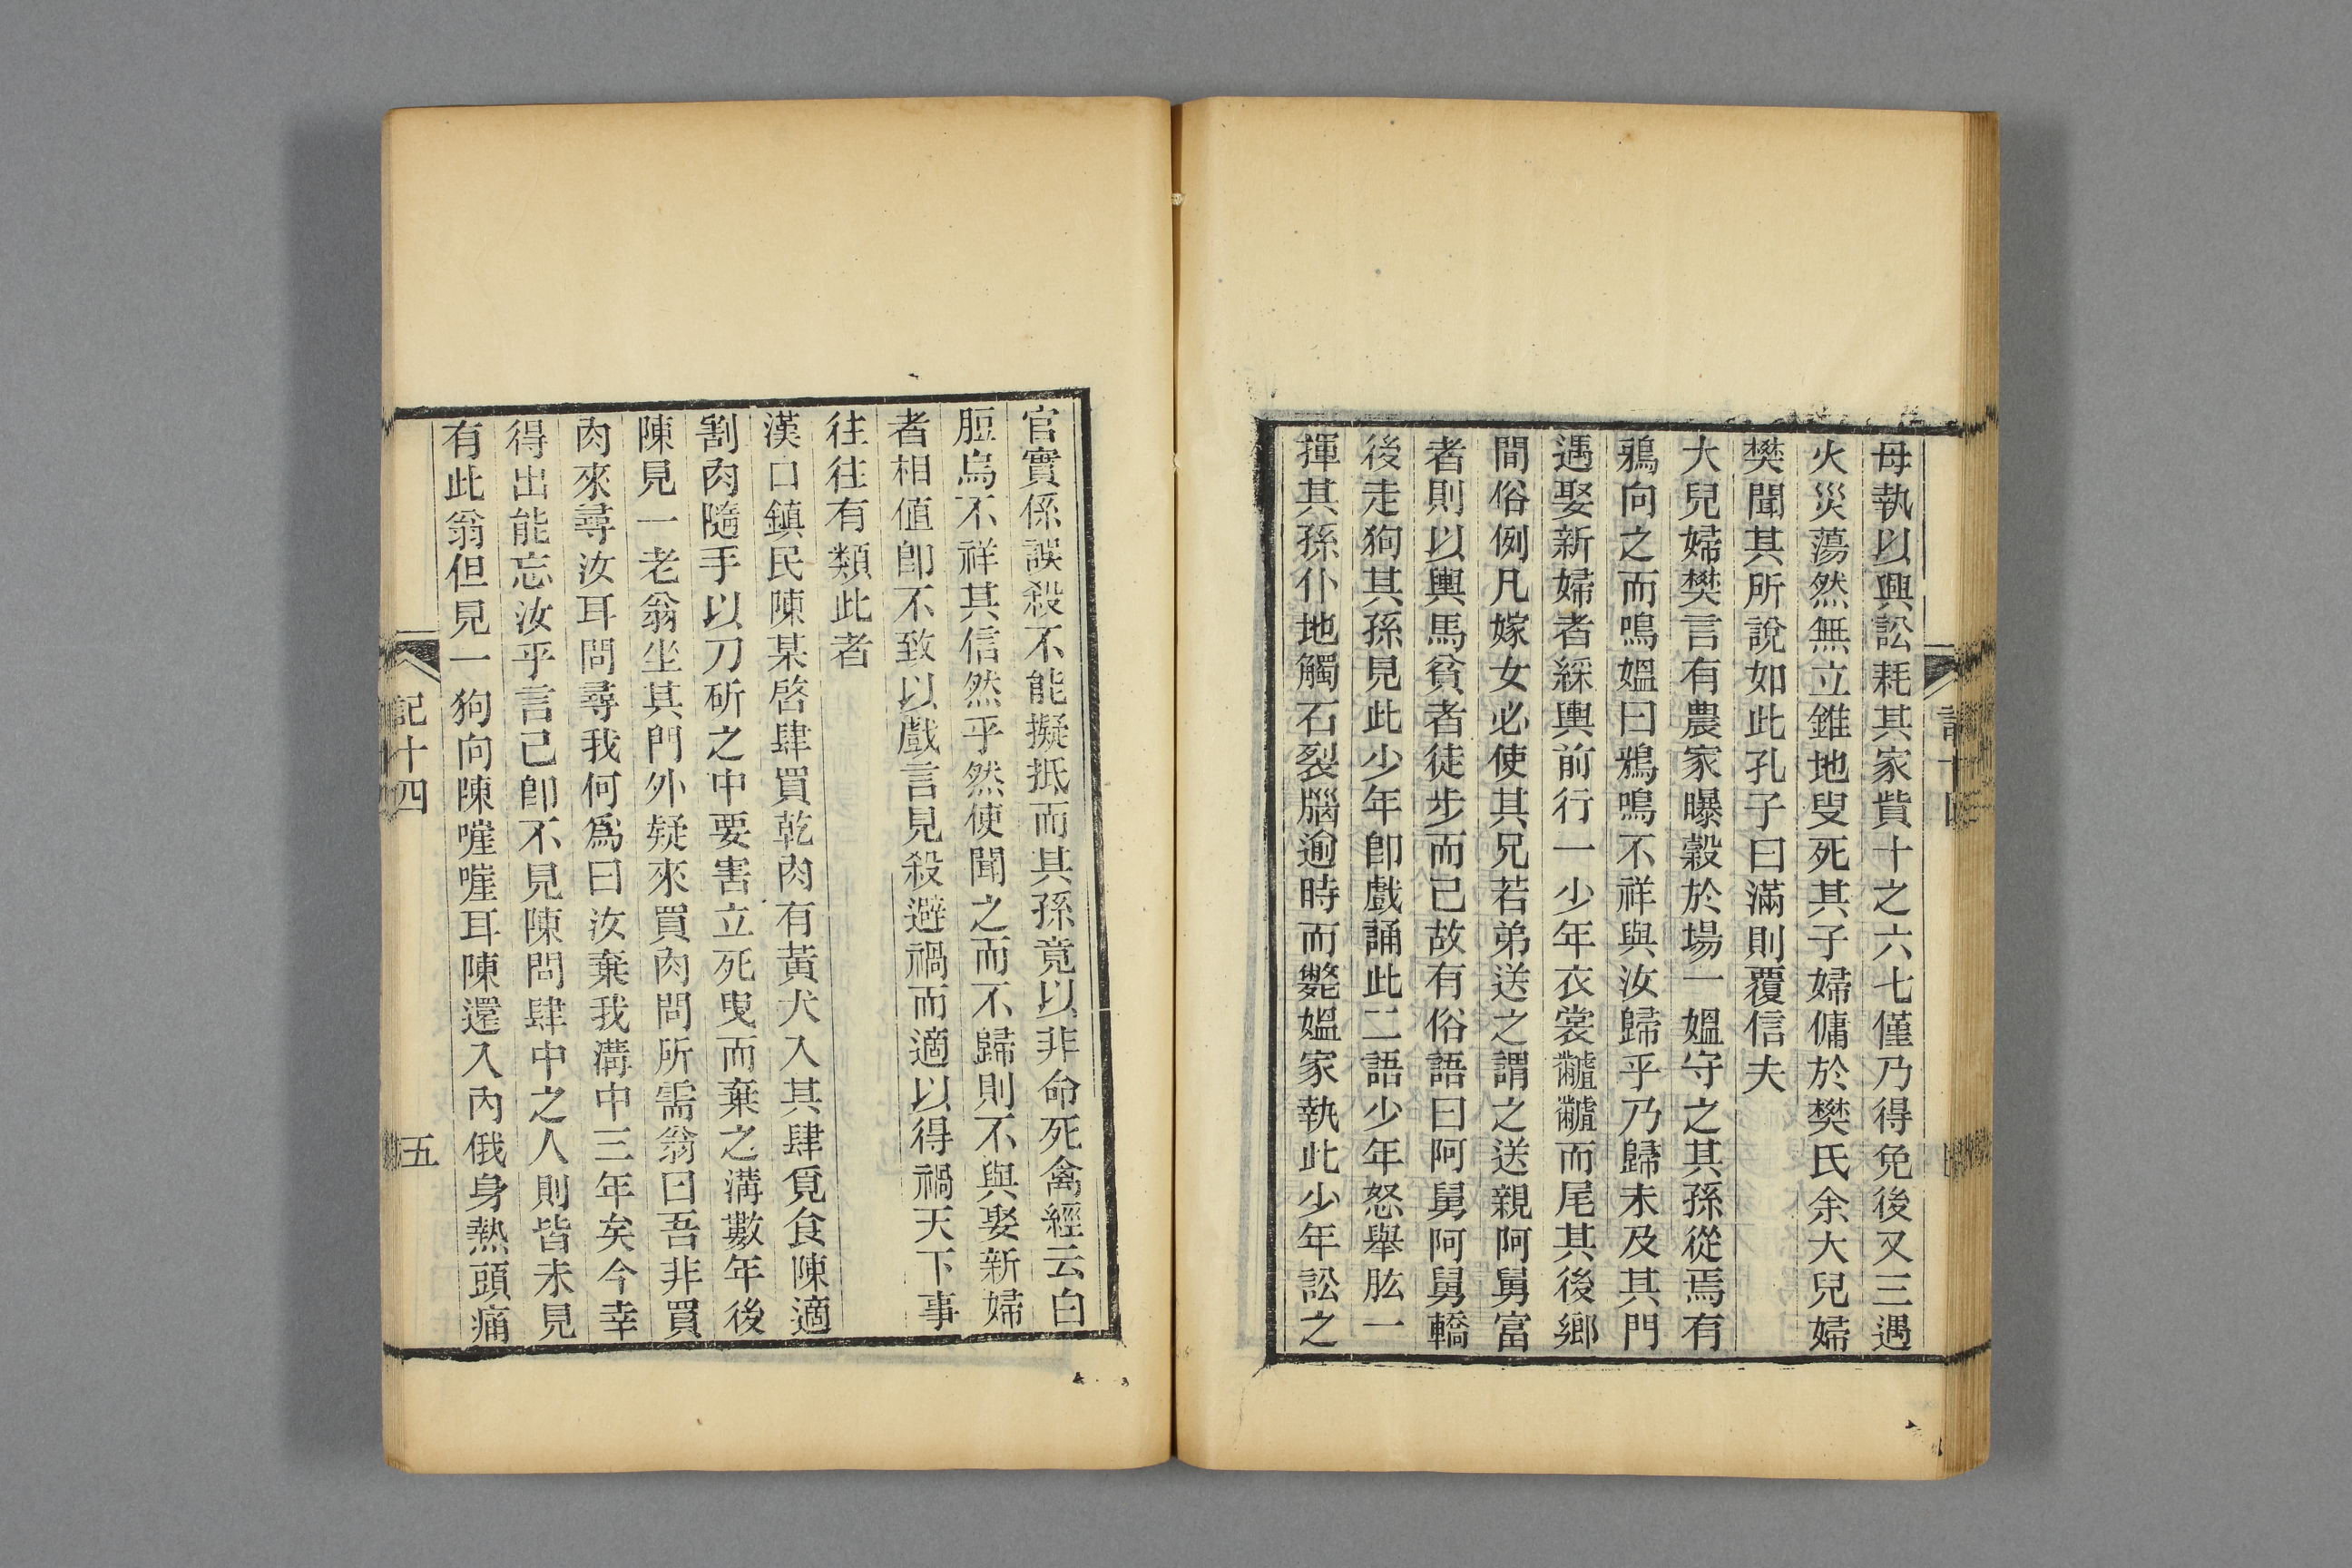 母執以興訟耗其家貲十之六七僅乃得免後又三遇
火災蕩然無立錐地叟死其子婦傭於樊氏余大兒婦
樊聞其所說如此孔子曰滿則覆信夫
大兒婦樊言有農家曝穀於場一媼守之其孫從焉有
鵶向之而鳴媼曰鵶鳴不祥與汝歸乎乃歸未及其門
遇娶新婦者綵輿前行一少年衣裳黼黼而尾其後鄉
間俗例凡嫁女必使其兄若弟送之謂之送親阿舅富
者則以輿馬貧者徒步而已故有俗語曰阿舅阿舅轎
後走狗其孫見此少年卽戲誦此二語少年怒舉肱一
揮其孫仆地觸石裂腦逾時而斃媼家執此少年訟之
官實係誤殺不能擬抵而其孫竟以非命死禽經云白
脰烏不祥其信然乎然使聞之而不歸則不與娶新婦
者相值卽不致以戲言見殺避禍而適以得禍天下事
往往有類此者
漢口鎮民陳某啓肆買乾肉有黃犬入其肆覓食陳適
割肉隨手以刀斫之中要害立死曳而棄之溝數年後
陳見一老翁坐其門外疑來買肉問所需翁曰吾非買
肉來尋汝耳問尋我何爲曰汝棄我溝中三年矣今幸
得出能忘汝乎言已卽不見陳問肆中之人則皆未見
有此翁但見一狗向陳嘊嘊耳陳還入內俄身熱頭痛
記十四
五